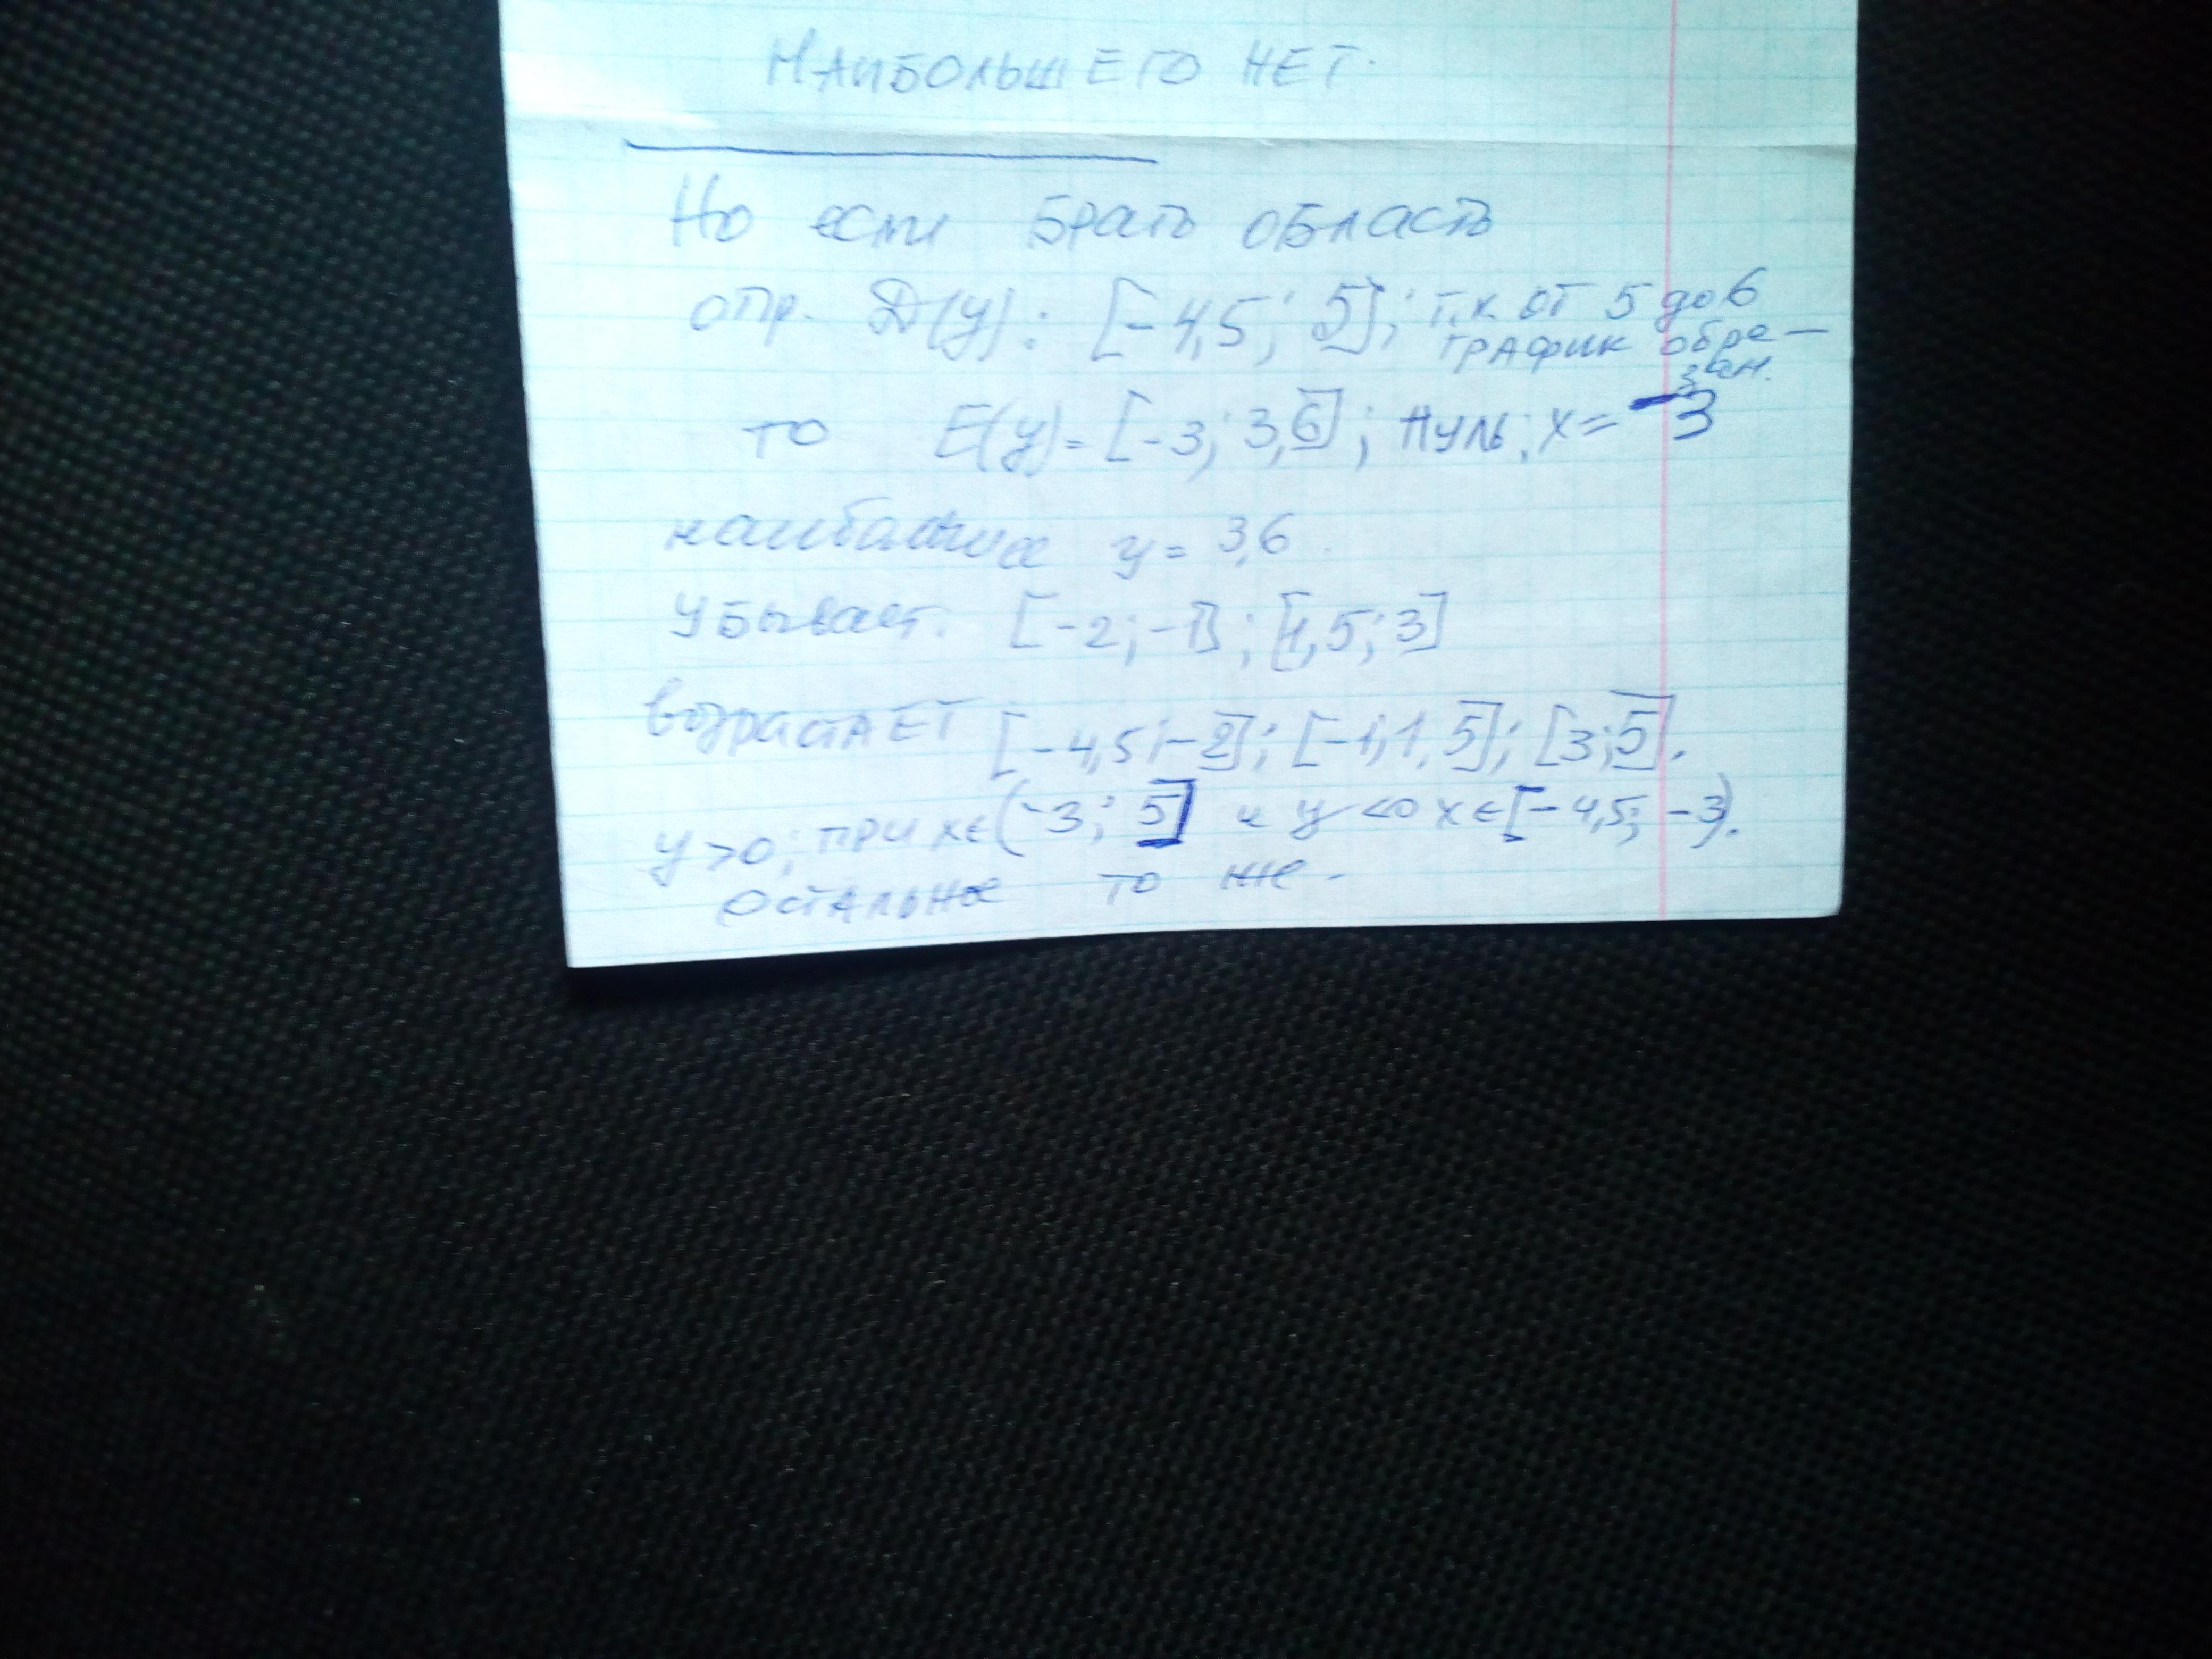 НАИБОЛЬШЕГО НЕТ.
Но если брать область
опр. Д(у): [-4,5; 5]; т.к. от 5 до 6
график обре-
зан.
то E(y)= [-3; 3,6]; нуль: x= -3
наибольшее y= 3,6.
Убывает. [-2; -1]; [1,5; 3]
возрастАЕТ [-4,5; -2]; [-1; 1,5]; [3; 5].
y>0; при x∈(-3; 5] и y<0 x∈[-4,5; -3).
остальное то же.